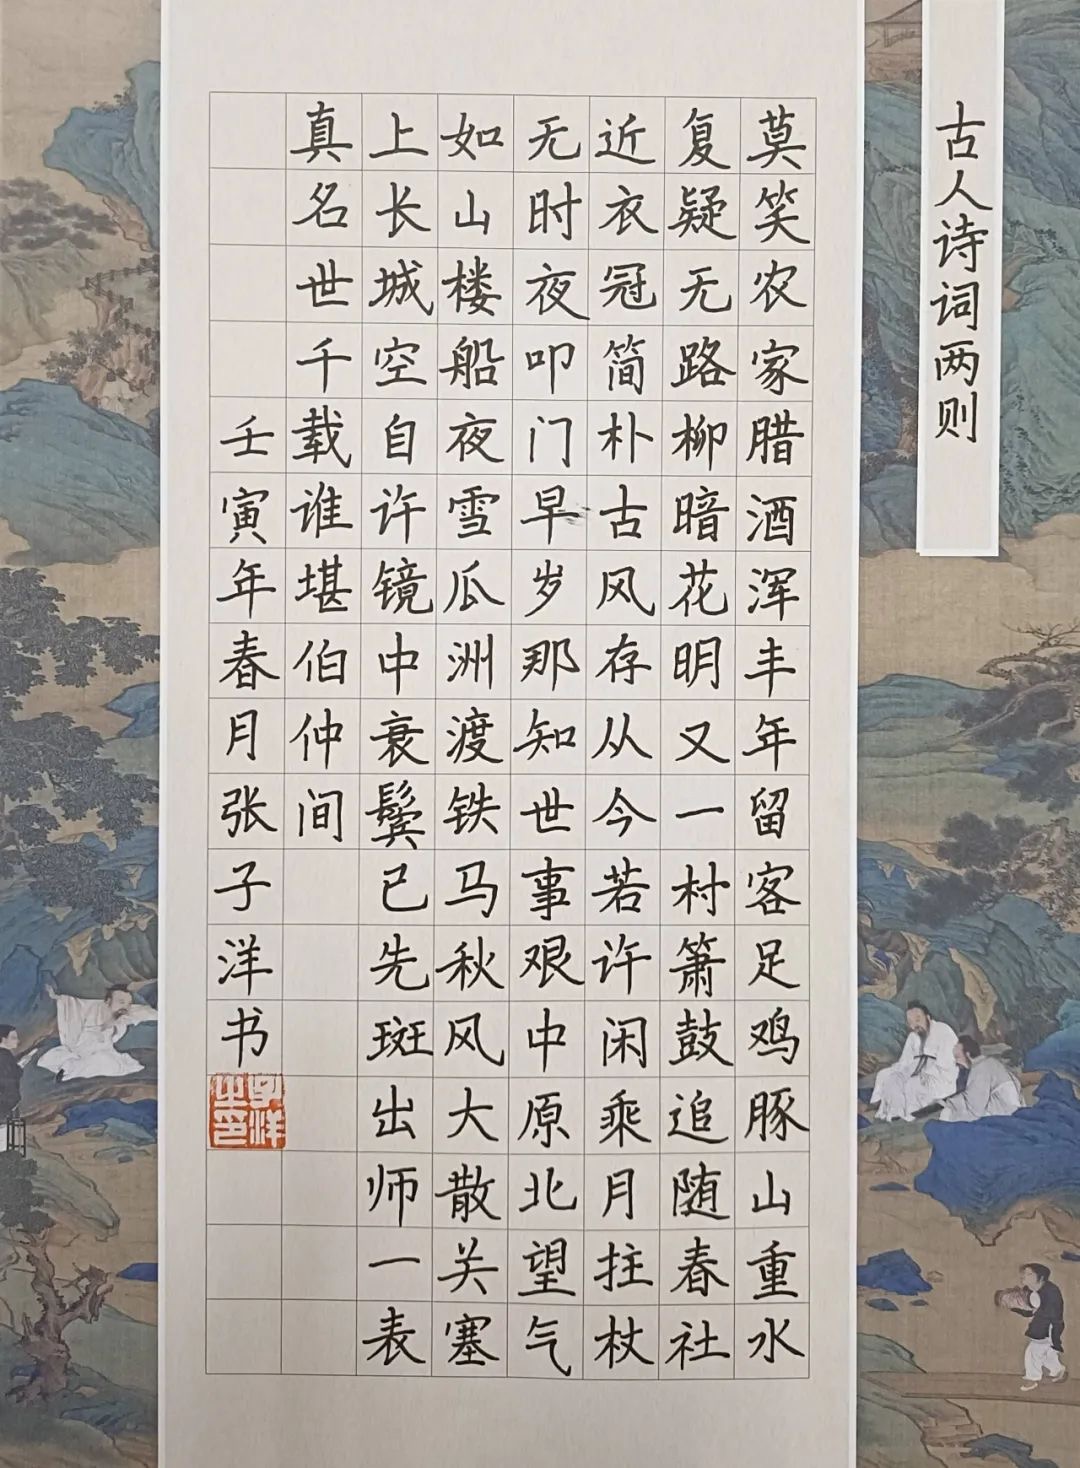 古人诗词两则
莫笑农家腊酒浑丰年留客足鸡豚山重水
复疑无路柳暗花明又一村箫鼓追随春社
近衣冠简朴古风存从今若许闲乘月拄杖
无时夜叩门早岁那知世事艰中原北望气
如山楼船夜雪瓜洲渡铁马秋风大散关塞
上长城空自许镜中衰鬓已先斑出师一表
真名世千载谁堪伯仲间
壬寅年春月张子洋书
子洋之印